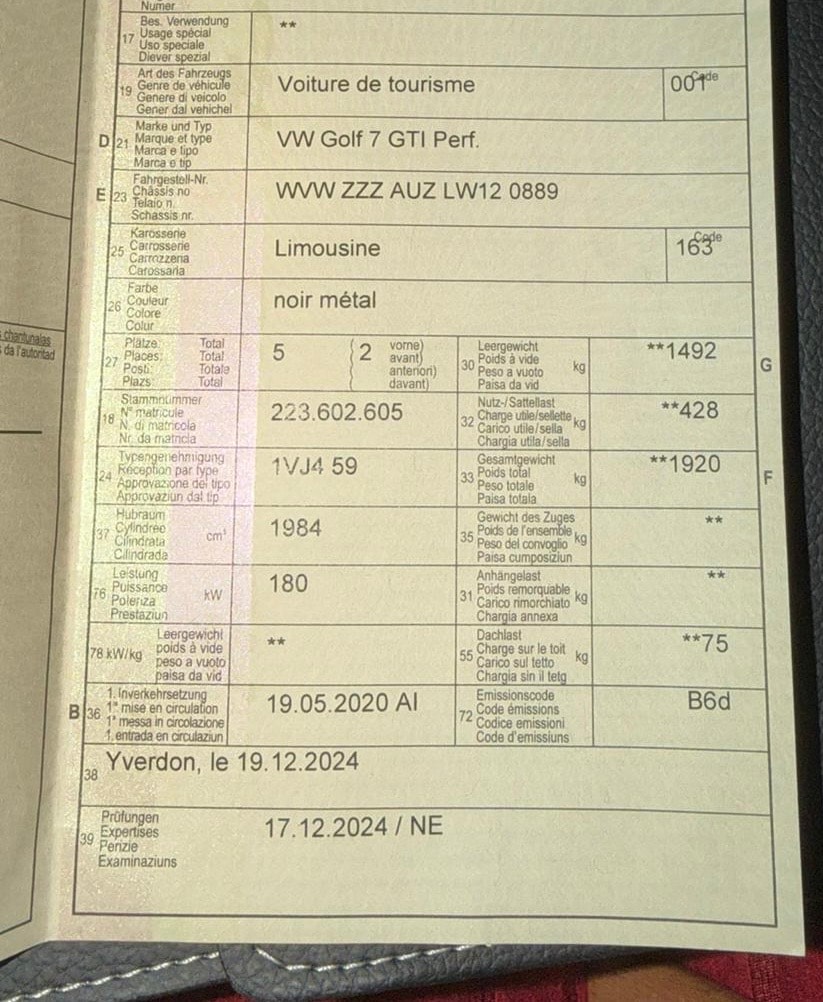 Numer
17 Bes. Verwendung
Usage spécial
Uso speciale
Diever spezial
**
19 Art des Fahrzeugs
Genre de véhicule
Genere di veicolo
Gener dal vehichel
Voiture de tourisme
Code
001
D 21 Marke und Typ
Marque et type
Marca e tipo
Marca e tip
VW Golf 7 GTI Perf.
E 23 Fahrgestell-Nr.
Châssis no
Telaio n.
Schassis nr.
WVW ZZZ AUZ LW12 0889
25 Karosserie
Carrosserie
Carrozzeria
Carossaria
Limousine
Code
163
26 Farbe
Couleur
Colore
Colur
noir métal
s chantunalas
s da l'autoritad
27 Plätze: Total
Places: Total
Posti: Totale
Plazs: Total
5
(2 vorne)
avant)
anteriori)
davant)
30 Leergewicht
Poids à vide
Peso a vuoto
Paisa da vid
kg
**1492
G
18 Stammnummer
N° matricule
N. di matricola
Nr. da matricla
223.602.605
32 Nutz-/Sattellast
Charge utile/sellette
Carico utile/sella
Chargia utila/sella
kg
**428
24 Typengenehmigung
Réception par type
Approvazione del tipo
Approvaziun dal tip
1VJ4 59
33 Gesamtgewicht
Poids total
Peso totale
Paisa totala
kg
**1920
F
37 Hubraum
Cylindrée
Cilindrata
Cilindrada
cm³
1984
35 Gewicht des Zuges
Poids de l'ensemble
Peso del convoglio
Paisa cumposiziun
kg
**
76 Leistung
Puissance
Potenza
Prestaziun
kW
180
31 Anhängelast
Poids remorquable
Carico rimorchiato
Chargia annexa
kg
**
78 kW/kg
Leergewicht
poids à vide
peso a vuoto
paisa da vid
**
55 Dachlast
Charge sur le toit
Carico sul tetto
Chargia sin il tetg
kg
**75
B 36 1. Inverkehrsetzung
1re mise en circulation
1a messa in circolazione
1. entrada en circulaziun
19.05.2020 AI
72 Emissionscode
Code émissions
Codice emissioni
Code d'emissiuns
B6d
38 Yverdon, le 19.12.2024
39 Prüfungen
Expertises
Perizie
Examinaziuns
17.12.2024 / NE